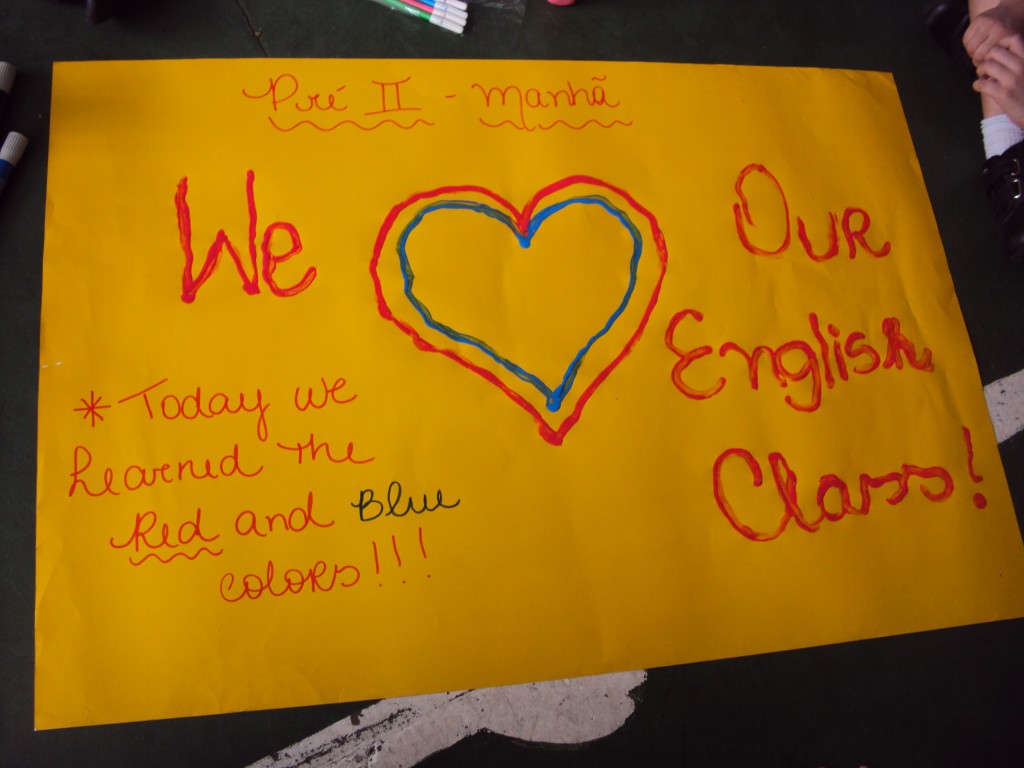 Pré II - Manhã
We
Our
English
Class!
* Today we
learned the
Red and Blue
colors!!!